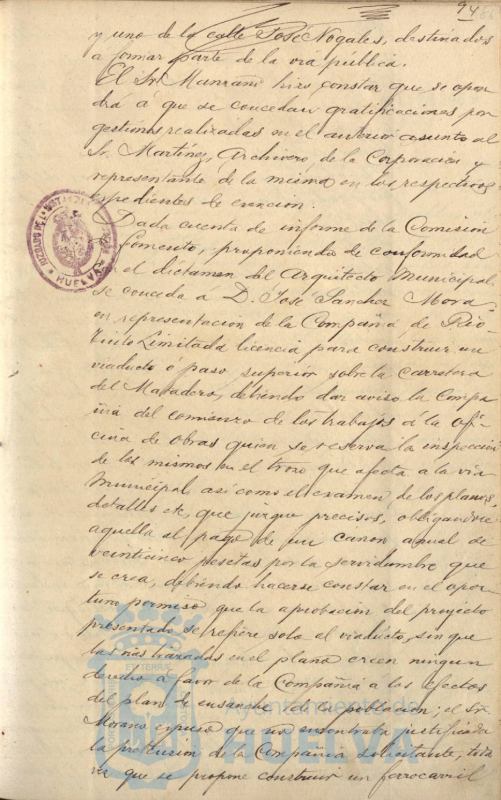 94
y uno de la calle José Nogales, destinados
a formar parte de la vía pública.
El Sr. Manzano hizo constar que se opon
drá á que se concedan gratificaciones por
gestiones realizadas en el anterior asunto al
Sr. Martínez, Archivero de la Corporación y
representante de la misma en los respectivos
expedientes de exención.
Dada cuenta de informe de la Comisión
Fomento, proponiendo de conformidad
el dictamen del Arquitecto Municipal
se conceda a D. José Sanchez Mora,
en representación de la Compañía de Rio
Tinto Limitada licencia para construir un
viaducto ó paso superior sobre la carretera
del Matadero, debiendo dar aviso la Compa
ñía del comienzo de los trabajos á la ofi
cina de obras quien se reserva la inspección
de los mismos en el trozo que afecta a la vía
Municipal, así como el examen de los planos,
detalles etc, que juzgue precisos, obligandose
aquella al pago de un canon anual de
veinticinco pesetas por la servidumbre que
se crea, debiendo hacerse constar en el opor
tuno permiso que la aprobación del proyecto
presentado se refiere solo al viaducto, sin que
las vías trazadas en el plano creen ningun
derecho a favor de la Compañía á los efectos
del plan de ensanche de la población; el Sr.
Morano expuso que no encontraba justificada
la pretensión de la Compañía solicitante, toda
vez que se propone construir un ferrocarril
HUELVA
Ayuntamiento de
HUELVA